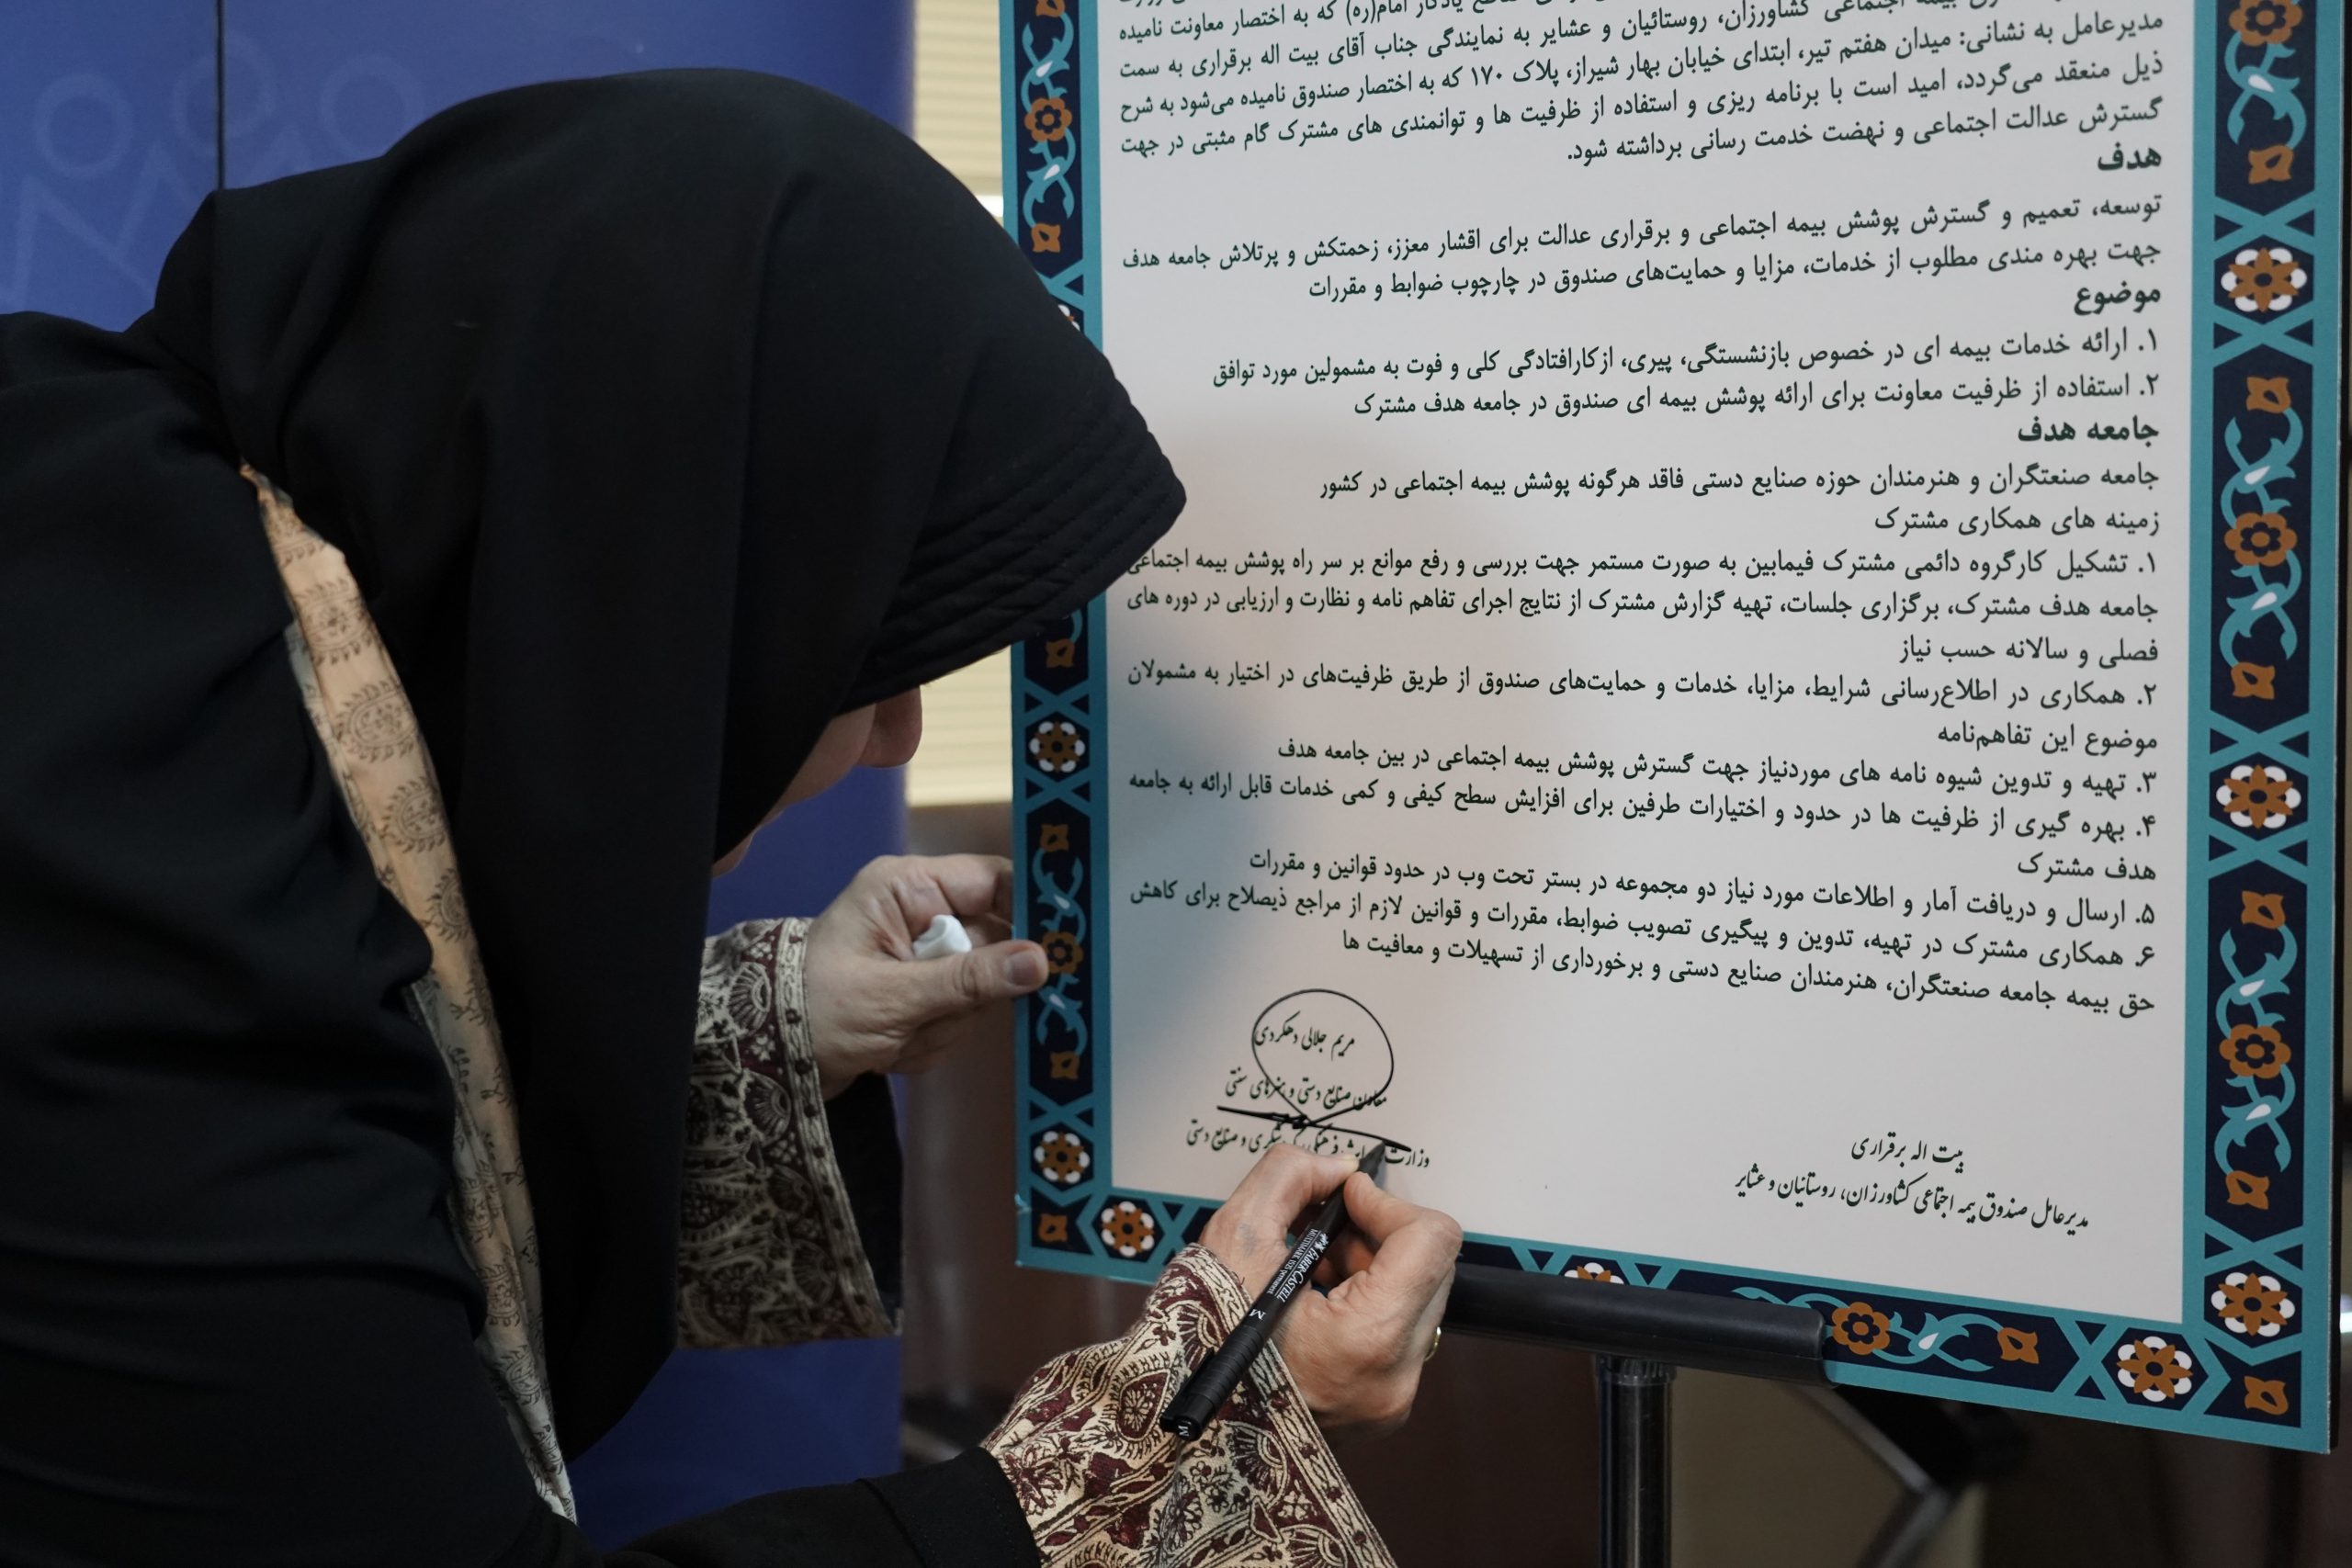 بیمه اجتماعی کشاورزان، روستائیان و عشایر به نمایندگی جناب آقای بیت اله برقراری به سمت
مدیرعامل به نشانی: میدان هفتم تیر، ابتدای خیابان بهار شیراز، پلاک ۱۷۰ که به اختصار صندوق نامیده می‌شود به شرح
ذیل منعقد می‌گردد، امید است با برنامه ریزی و استفاده از ظرفیت ها و توانمندی های مشترک گام مثبتی در جهت
گسترش عدالت اجتماعی و نهضت خدمت رسانی برداشته شود.
هدف
توسعه، تعمیم و گسترش پوشش بیمه اجتماعی و برقراری عدالت برای اقشار معزز، زحمتکش و پرتلاش جامعه هدف
جهت بهره مندی مطلوب از خدمات، مزایا و حمایت‌های صندوق در چارچوب ضوابط و مقررات
موضوع
۱. ارائه خدمات بیمه ای در خصوص بازنشستگی، پیری، ازکارافتادگی کلی و فوت به مشمولین مورد توافق
۲. استفاده از ظرفیت معاونت برای ارائه پوشش بیمه ای صندوق در جامعه هدف مشترک
جامعه هدف
جامعه صنعتگران و هنرمندان حوزه صنایع دستی فاقد هرگونه پوشش بیمه اجتماعی در کشور
زمینه های همکاری مشترک
۱. تشکیل کارگروه دائمی مشترک فیمابین به صورت مستمر جهت بررسی و رفع موانع بر سر راه پوشش بیمه اجتماعی
جامعه هدف مشترک، برگزاری جلسات، تهیه گزارش مشترک از نتایج اجرای تفاهم نامه و نظارت و ارزیابی در دوره های
فصلی و سالانه حسب نیاز
۲. همکاری در اطلاع‌رسانی شرایط، مزایا، خدمات و حمایت‌های صندوق از طریق ظرفیت‌های در اختیار به مشمولان
موضوع این تفاهم‌نامه
۳. تهیه و تدوین شیوه نامه های موردنیاز جهت گسترش پوشش بیمه اجتماعی در بین جامعه هدف
۴. بهره گیری از ظرفیت ها در حدود و اختیارات طرفین برای افزایش سطح کیفی و کمی خدمات قابل ارائه به جامعه
هدف مشترک
۵. ارسال و دریافت آمار و اطلاعات مورد نیاز دو مجموعه در بستر تحت وب در حدود قوانین و مقررات
۶. همکاری مشترک در تهیه، تدوین و پیگیری تصویب ضوابط، مقررات و قوانین لازم از مراجع ذیصلاح برای کاهش
حق بیمه جامعه صنعتگران، هنرمندان صنایع دستی و برخورداری از تسهیلات و معافیت ها
بیت اله برقراری
مدیرعامل صندوق بیمه اجتماعی کشاورزان، روستائیان و عشایر
مریم جلالی دهکردی
معاون صنایع دستی و هنرهای سنتی
وزارت گردشگری و صنایع دستی
FABER-CASTELL
MULTIMARK
permanent
M